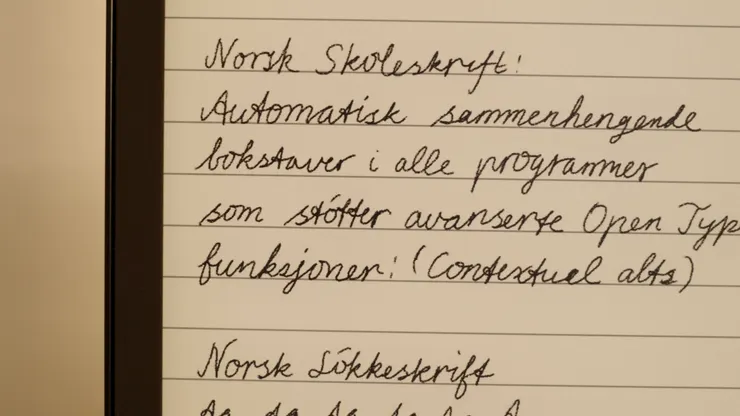 Norsk Skoleskrift:
Automatisk sammenhengende
bokstaver i alle programmer
som støtter avanserte Open Typ
funksjoner: (Contextuel alts)
Norsk Løkkeskrift